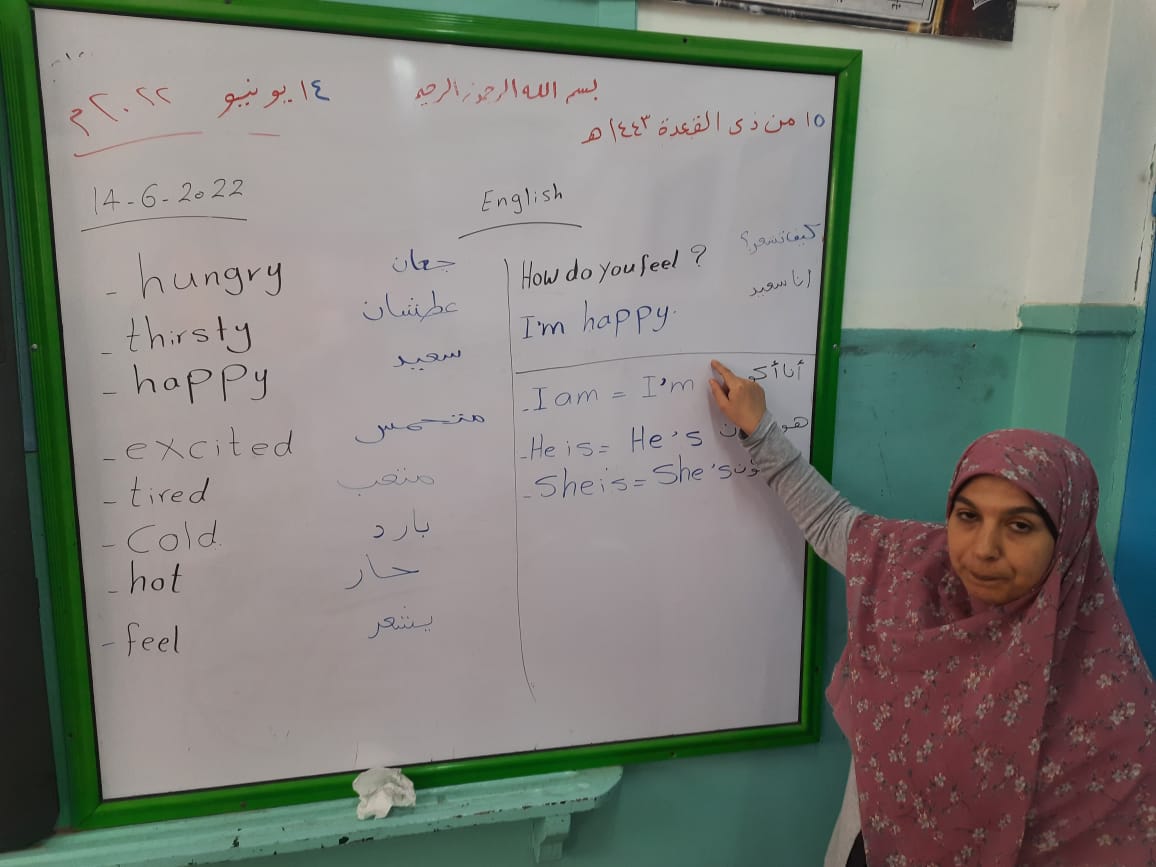 بسم الله الرحمن الرحيم
١٤ يونيو ٢٠٢٢ م
١٥ من ذى القعدة ١٤٤٣ هـ
14-6-2022
English
- hungry جعان
- thirsty عطشان
- happy سعيد
- excited متحمس
- tired متعب
- Cold بارد
- hot حار
- feel يشعر
How do you feel ? كيف تشعر؟
I'm happy. انا سعيد
- I am = I'm أنا
- He is = He's هو
- She is = She's